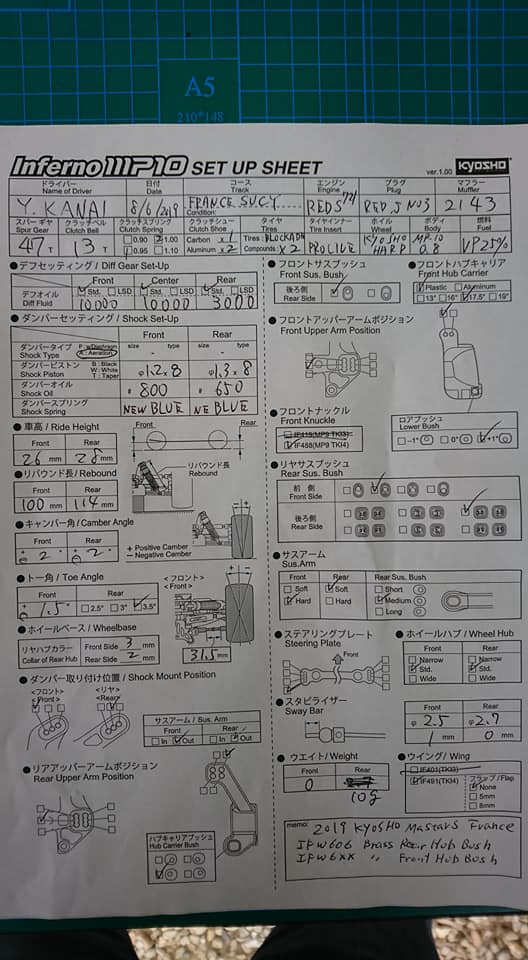 A5
210*148
Inferno MP10 SET UP SHEET
ver.1.00 KYOSHO
ドライバー Name of Driver
日付 Date
コース Track
エンジン Engine
プラグ Plug
マフラー Muffler
Y. KANAI
8/6/2019
FRANCE S.U.C.Y.
Condition:
REDS 721
REDS NO3
2143
スパーギヤ Spur Gear
クラッチベル Clutch Bell
クラッチスプリング Clutch Spring
クラッチシュー Clutch Shoe
タイヤ Tires
タイヤインナー Tire Insert
ホイル Wheel
ボディ Body
燃料 Fuel
47 T
13 T
0.90 1.00
0.95 1.10
Carbon x 1
Aluminum x 2
Tires : BLOCKADE
Compounds x 2
PROLINE
KYOSHO HARD
MP10
VP25%
● デフセッティング / Diff Gear Set-Up
Front Center Rear
Std. LSD Std. LSD Std. LSD
デフオイル Diff Fluid
10000 10000 3000
● ダンパーセッティング / Shock Set-Up
Front Rear
ダンパータイプ Shock Type
P : Diaphragm
A : Aeration
size type size type
ダンパーピストン Shock Piston
B : Black
W : White
T : Taper
φ1.2 x 8 φ1.3 x 8
ダンパーオイル Shock Oil
# 800 # 650
ダンパースプリング Shock Spring
NEW BLUE NE BLUE
● 車高 / Ride Height
Front Rear
26 mm 28 mm
Front Rear
● リバウンド長 / Rebound
Front Rear
100 mm 114 mm
リバウンド長 Rebound
● キャンバー角 / Camber Angle
Front Rear
+ - 2 ° + - 2 °
+ Positive Camber
− Negative Camber
● トー角 / Toe Angle
Front Rear
+ - 1.5 ° 2.5° 3° 3.5°
<フロント>
<Front>
31.5 mm
● ホイールベース / Wheelbase
リヤハブカラー Collar of Rear Hub
Front Side 3 mm
Rear Side 2 mm
● ダンパー取り付け位置 / Shock Mount Position
<フロント> <リヤ>
<Front> <Rear>
サスアーム / Sus. Arm
Front Rear
In Out In Out
● リアアッパーアームポジション
Rear Upper Arm Position
ハブキャリアブッシュ
Hub Carrier Bush
● フロントサスブッシュ
Front Sus. Bush
後ろ側 Rear Side
● フロントハブキャリア
Front Hub Carrier
Plastic Aluminum
13° 16° 17.5° 19°
● フロントアッパーアームポジション
Front Upper Arm Position
● フロントナックル
Front Knuckle
IF488(MP9 TKI4)
ロアブッシュ
Lower Bush
−1° 0° +1°
● リヤサスブッシュ
Rear Sus. Bush
前側 Front Side
後ろ側 Rear Side
● サスアーム
Sus.Arm
Front Rear Rear Sus. Bush
Soft Soft Short
Hard Hard Medium
Long
● ステアリングプレート
Steering Plate
Front
● ホイールハブ / Wheel Hub
Front Rear
Narrow Narrow
Std. Std.
Wide Wide
● スタビライザー
Sway Bar
Front Rear
φ 2.5 φ 2.7
1 mm 0 mm
● ウエイト / Weight
Front Rear
0
10g
● ウイング / Wing
IF401(TKI3)
IF491(TKI4)
フラップ / Flap
None
5mm
8mm
memo: 2019 KYOSHO Masters France
IFW606 Brass Rear Hub Bush
IFW6XX " Front Hub Bush